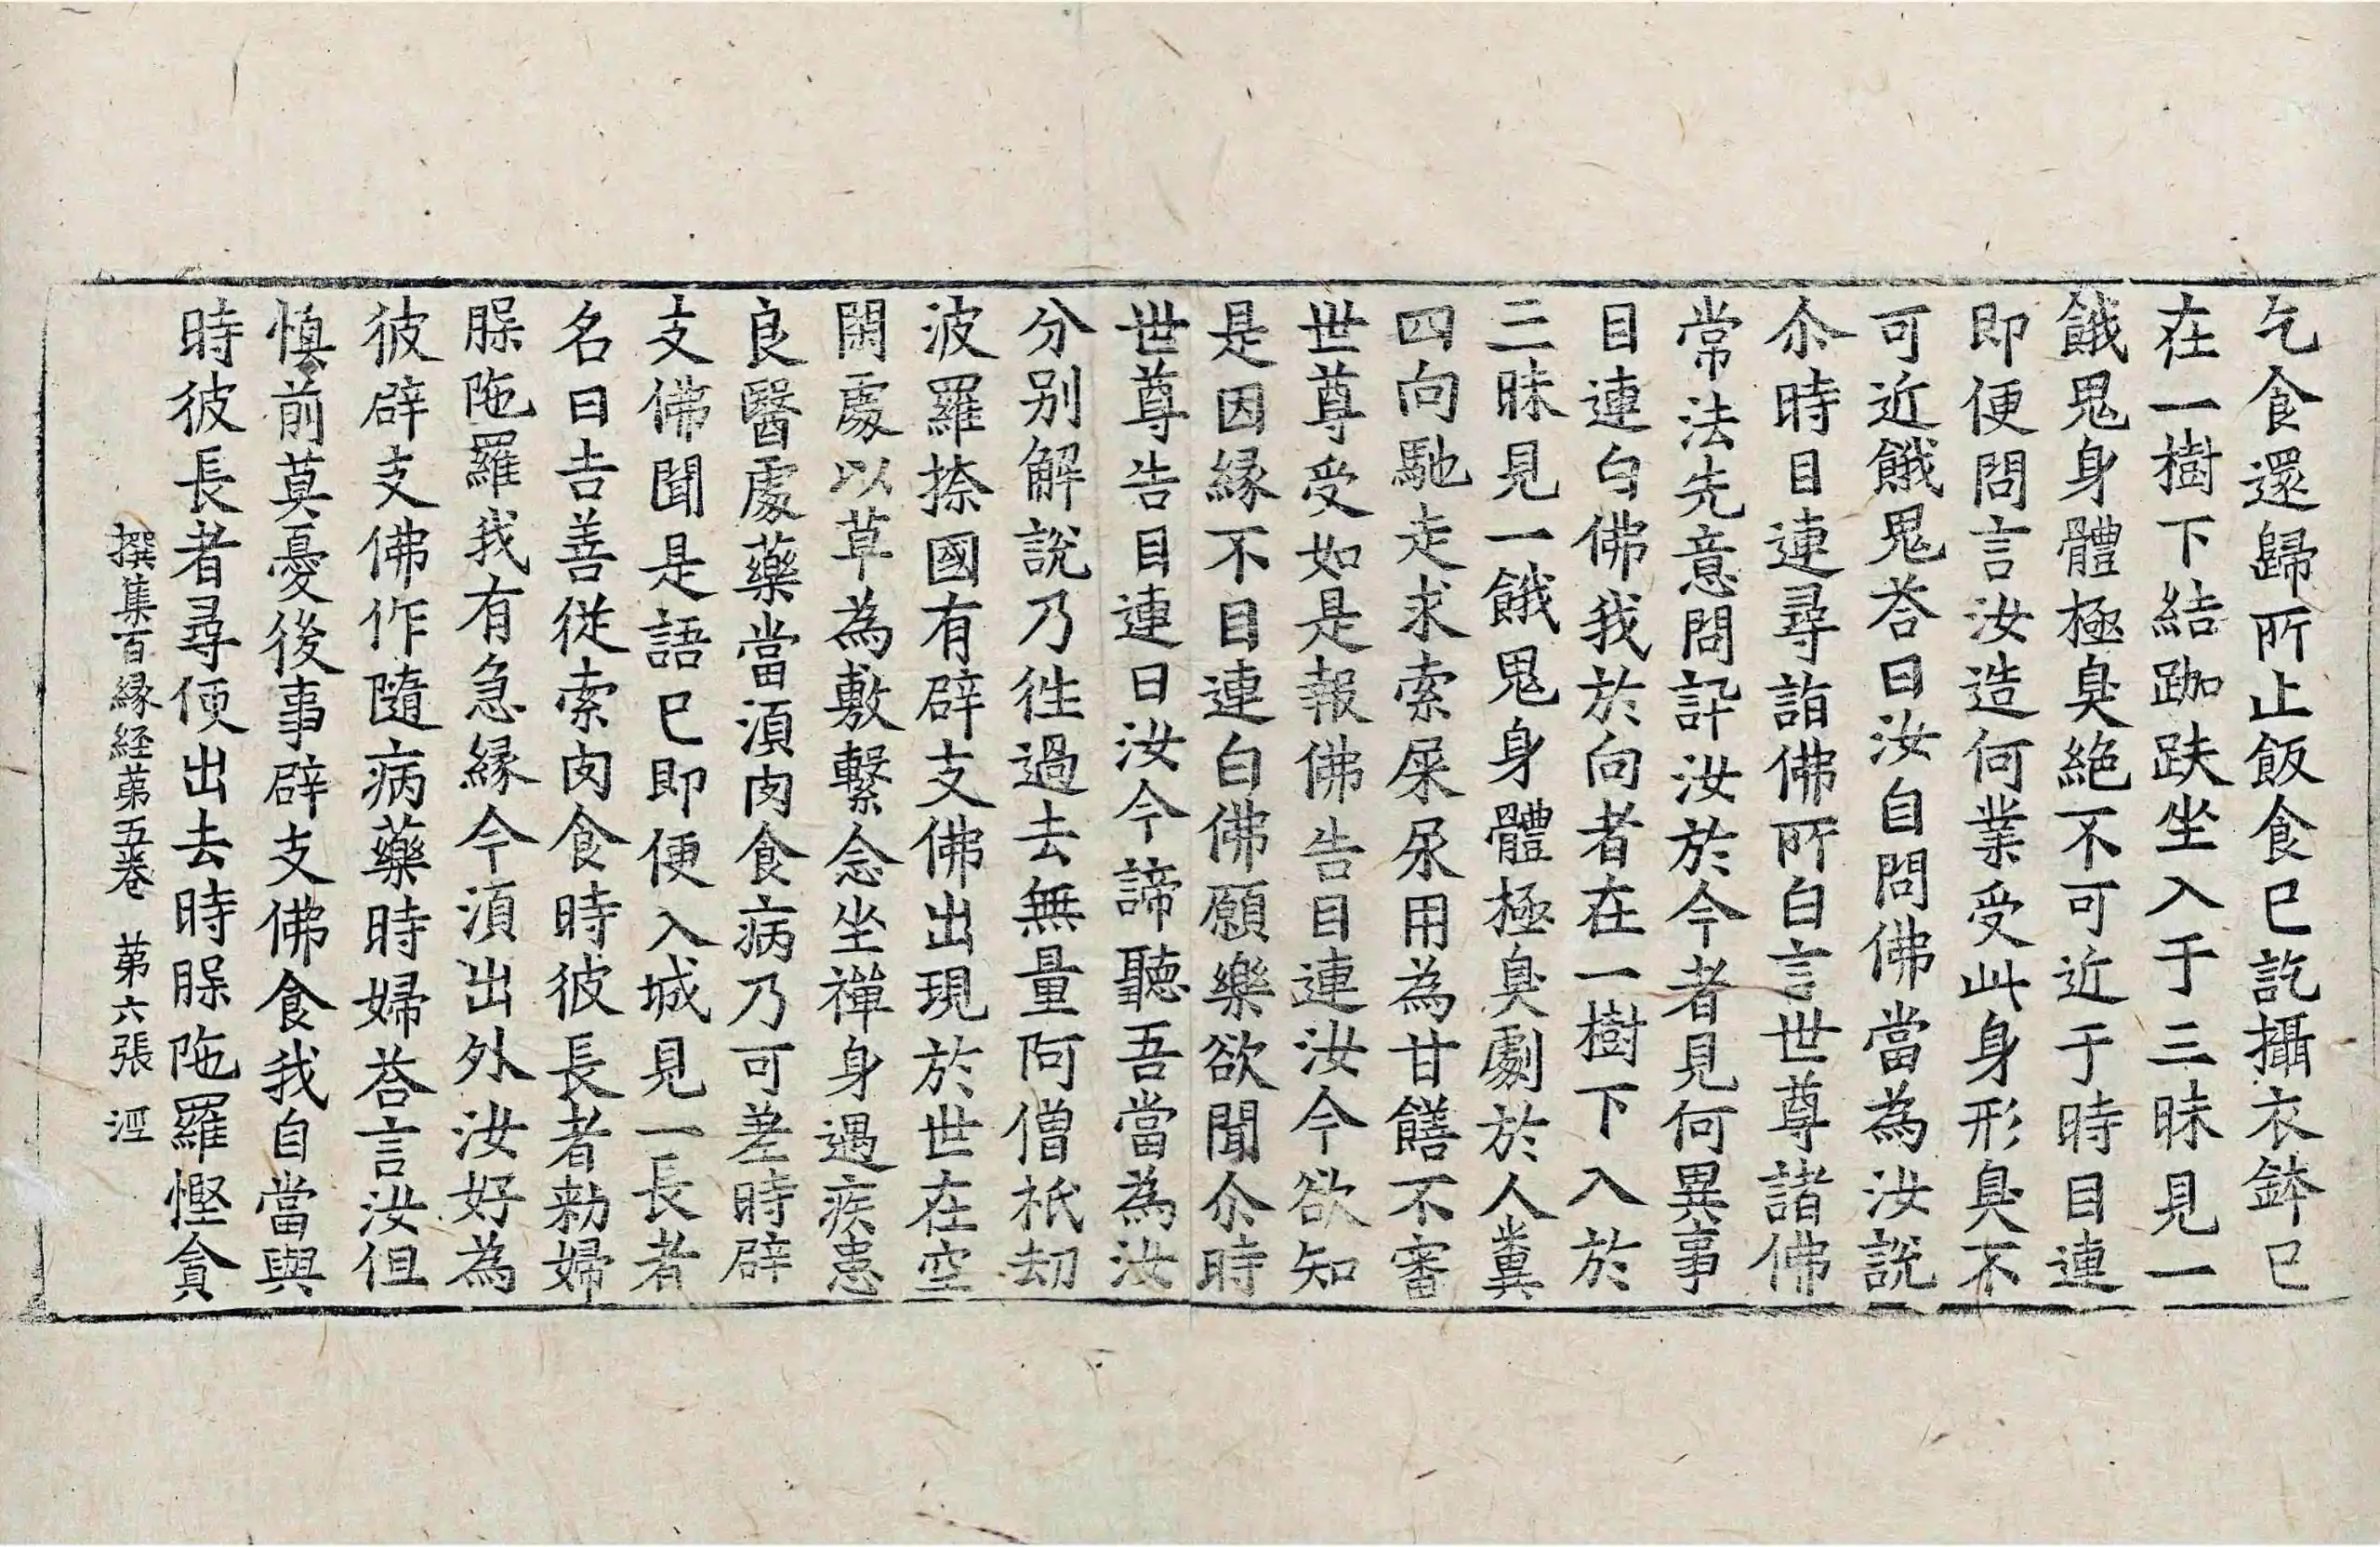 乞食還歸所止飯食已訖攝衣鉢已
在一樹下結跏趺坐入于三昧見一
餓鬼身體極臭絶不可近于時目連
即便問言汝造何業受此身形臭不
可近餓鬼荅曰汝自問佛當為汝説
尒時目連尋詣佛所白言世尊諸佛
常法先意問訊汝於今者見何異事
目連白佛我於向者在一樹下入於
三昧見一餓鬼身體極臭劇於人糞
四向馳走求索屎尿用為甘饍不審
世尊受如是報佛告目連汝今欲知
是因縁不目連白佛願樂欲聞尒時
世尊告目連曰汝今諦聽吾當為汝
分别解説乃徃過去無量阿僧祇劫
波羅捺國有辟支佛出現於世在空
閑處以草為敷繫念坐禪身遇疾患
良醫處藥當湏肉食病乃可差時辟
支佛聞是語已即便入城見一長者
名曰吉善從索肉食時彼長者勑婦
䐗陁羅我有急縁今湏出外汝好為
彼辟支佛作隨病藥時婦荅言汝但
慎前莫憂後事辟支佛食我自當與
時彼長者尋便出去時䐗陁羅慳貪
撰集百縁経苐五巻 苐六張 淫